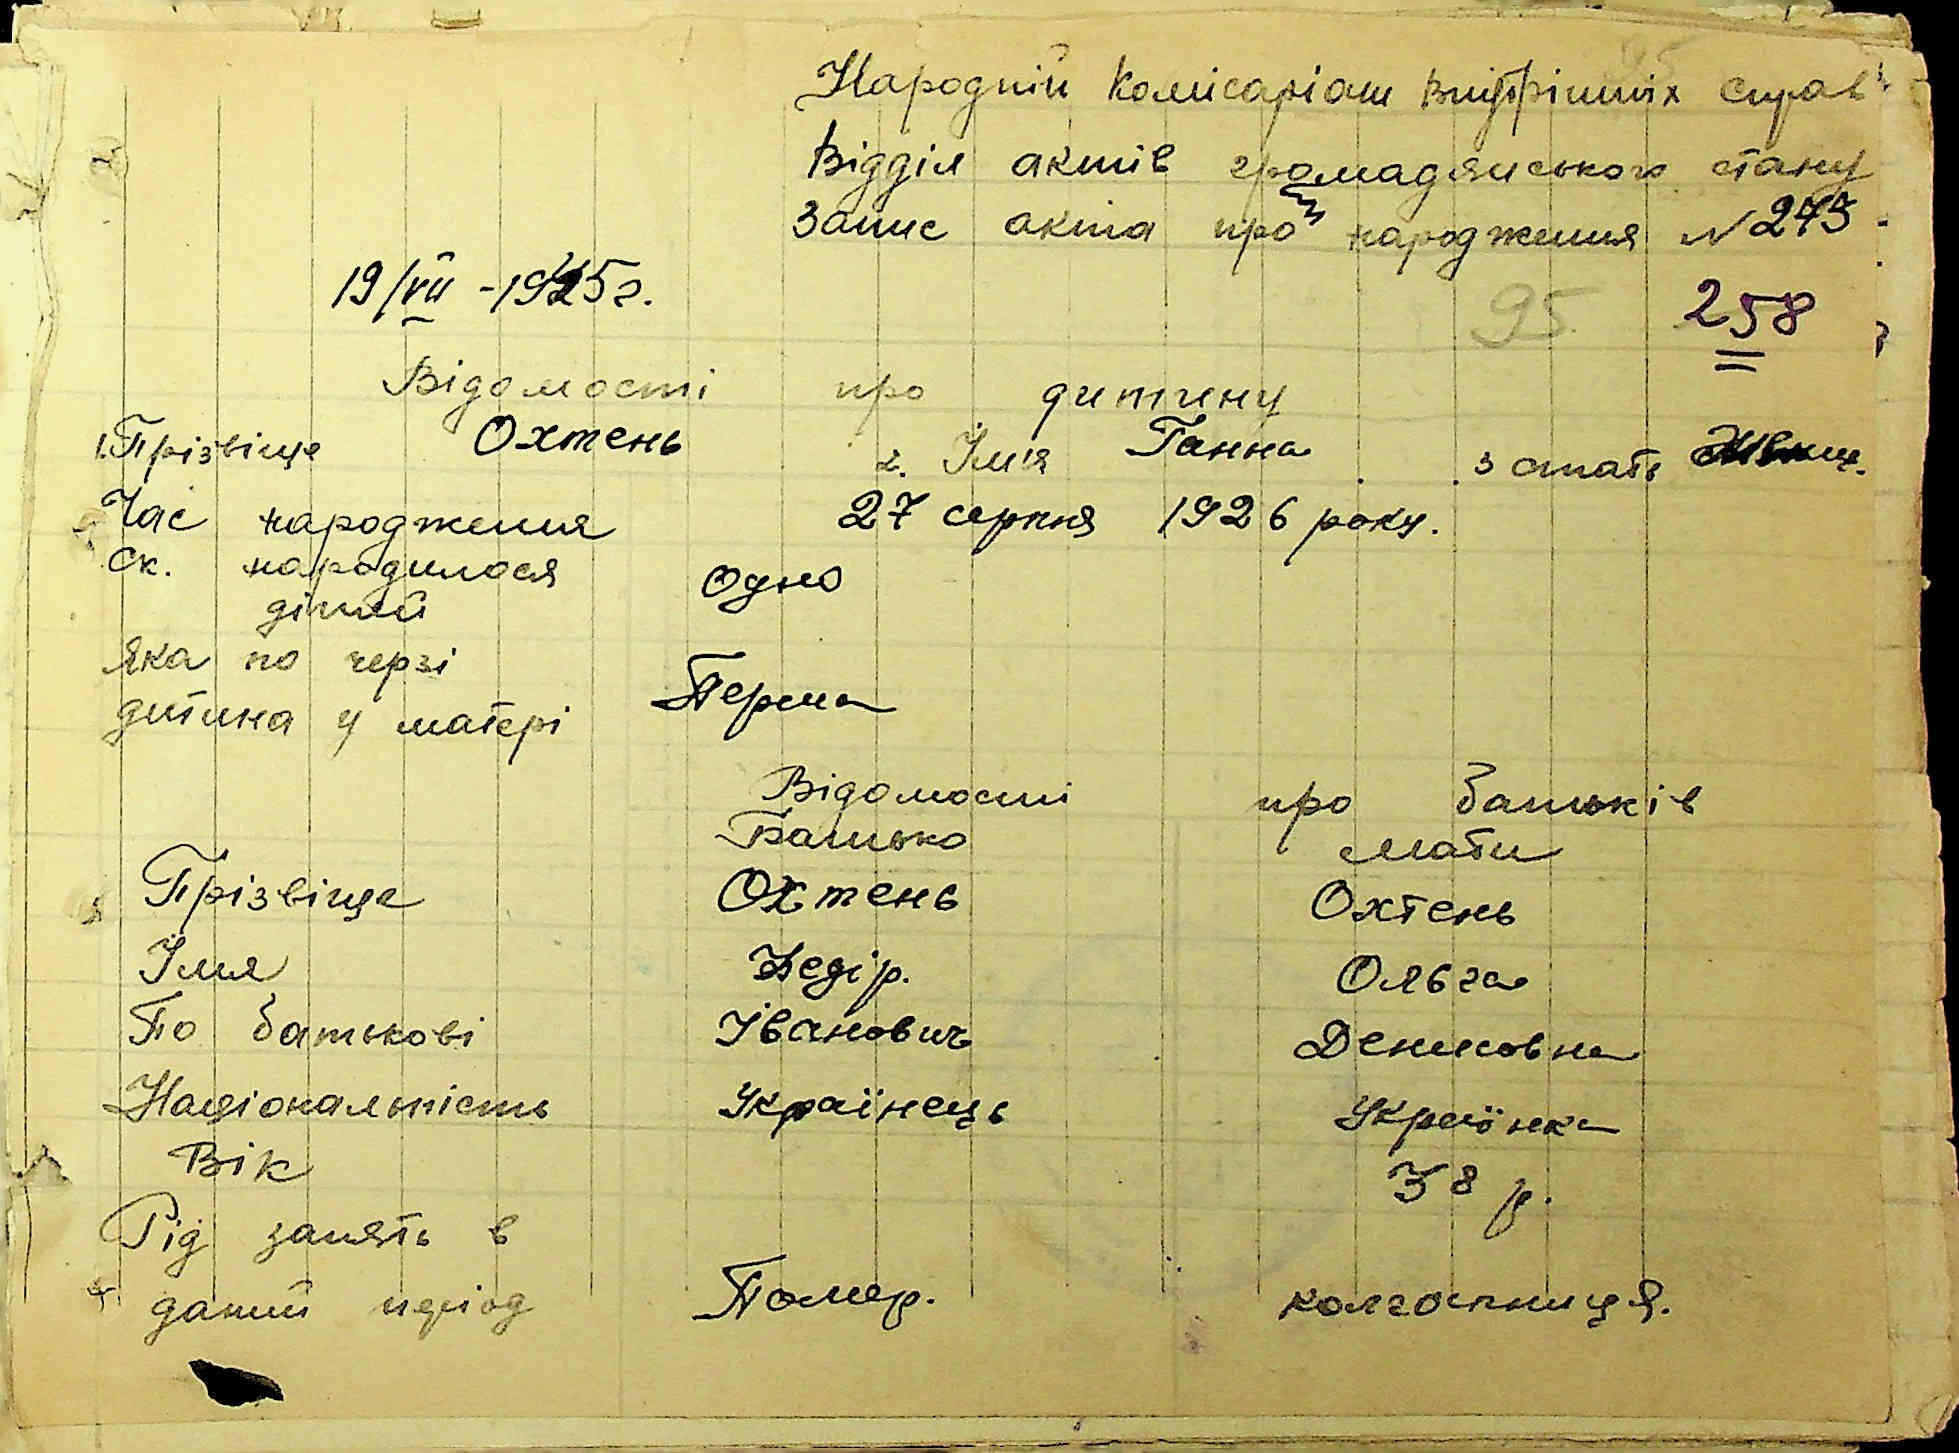 Народній Комісаріат внутрішніх справ
Відділ актів громадянського стану
Запис акта про народження N 273
19/VII - 1945 г.
95 258
Відомості про дитину
1. Прізвіще Охтень 2. Імʼя Ганна 3 стать Жіноч.
Час народження 27 серпня 1926 року.
Ск. народилося
дітей Одно
Яка по черзі
дитина у матері Перша
Відомості про батьків
Батько Мати
Прізвіще Охтень Охтень
Імя Федір. Ольга
По батькові Іванович Денисовна
Національність Українець Українка
Вік 38 р.
Рід занять в
даний період Помер. колгоспниця.